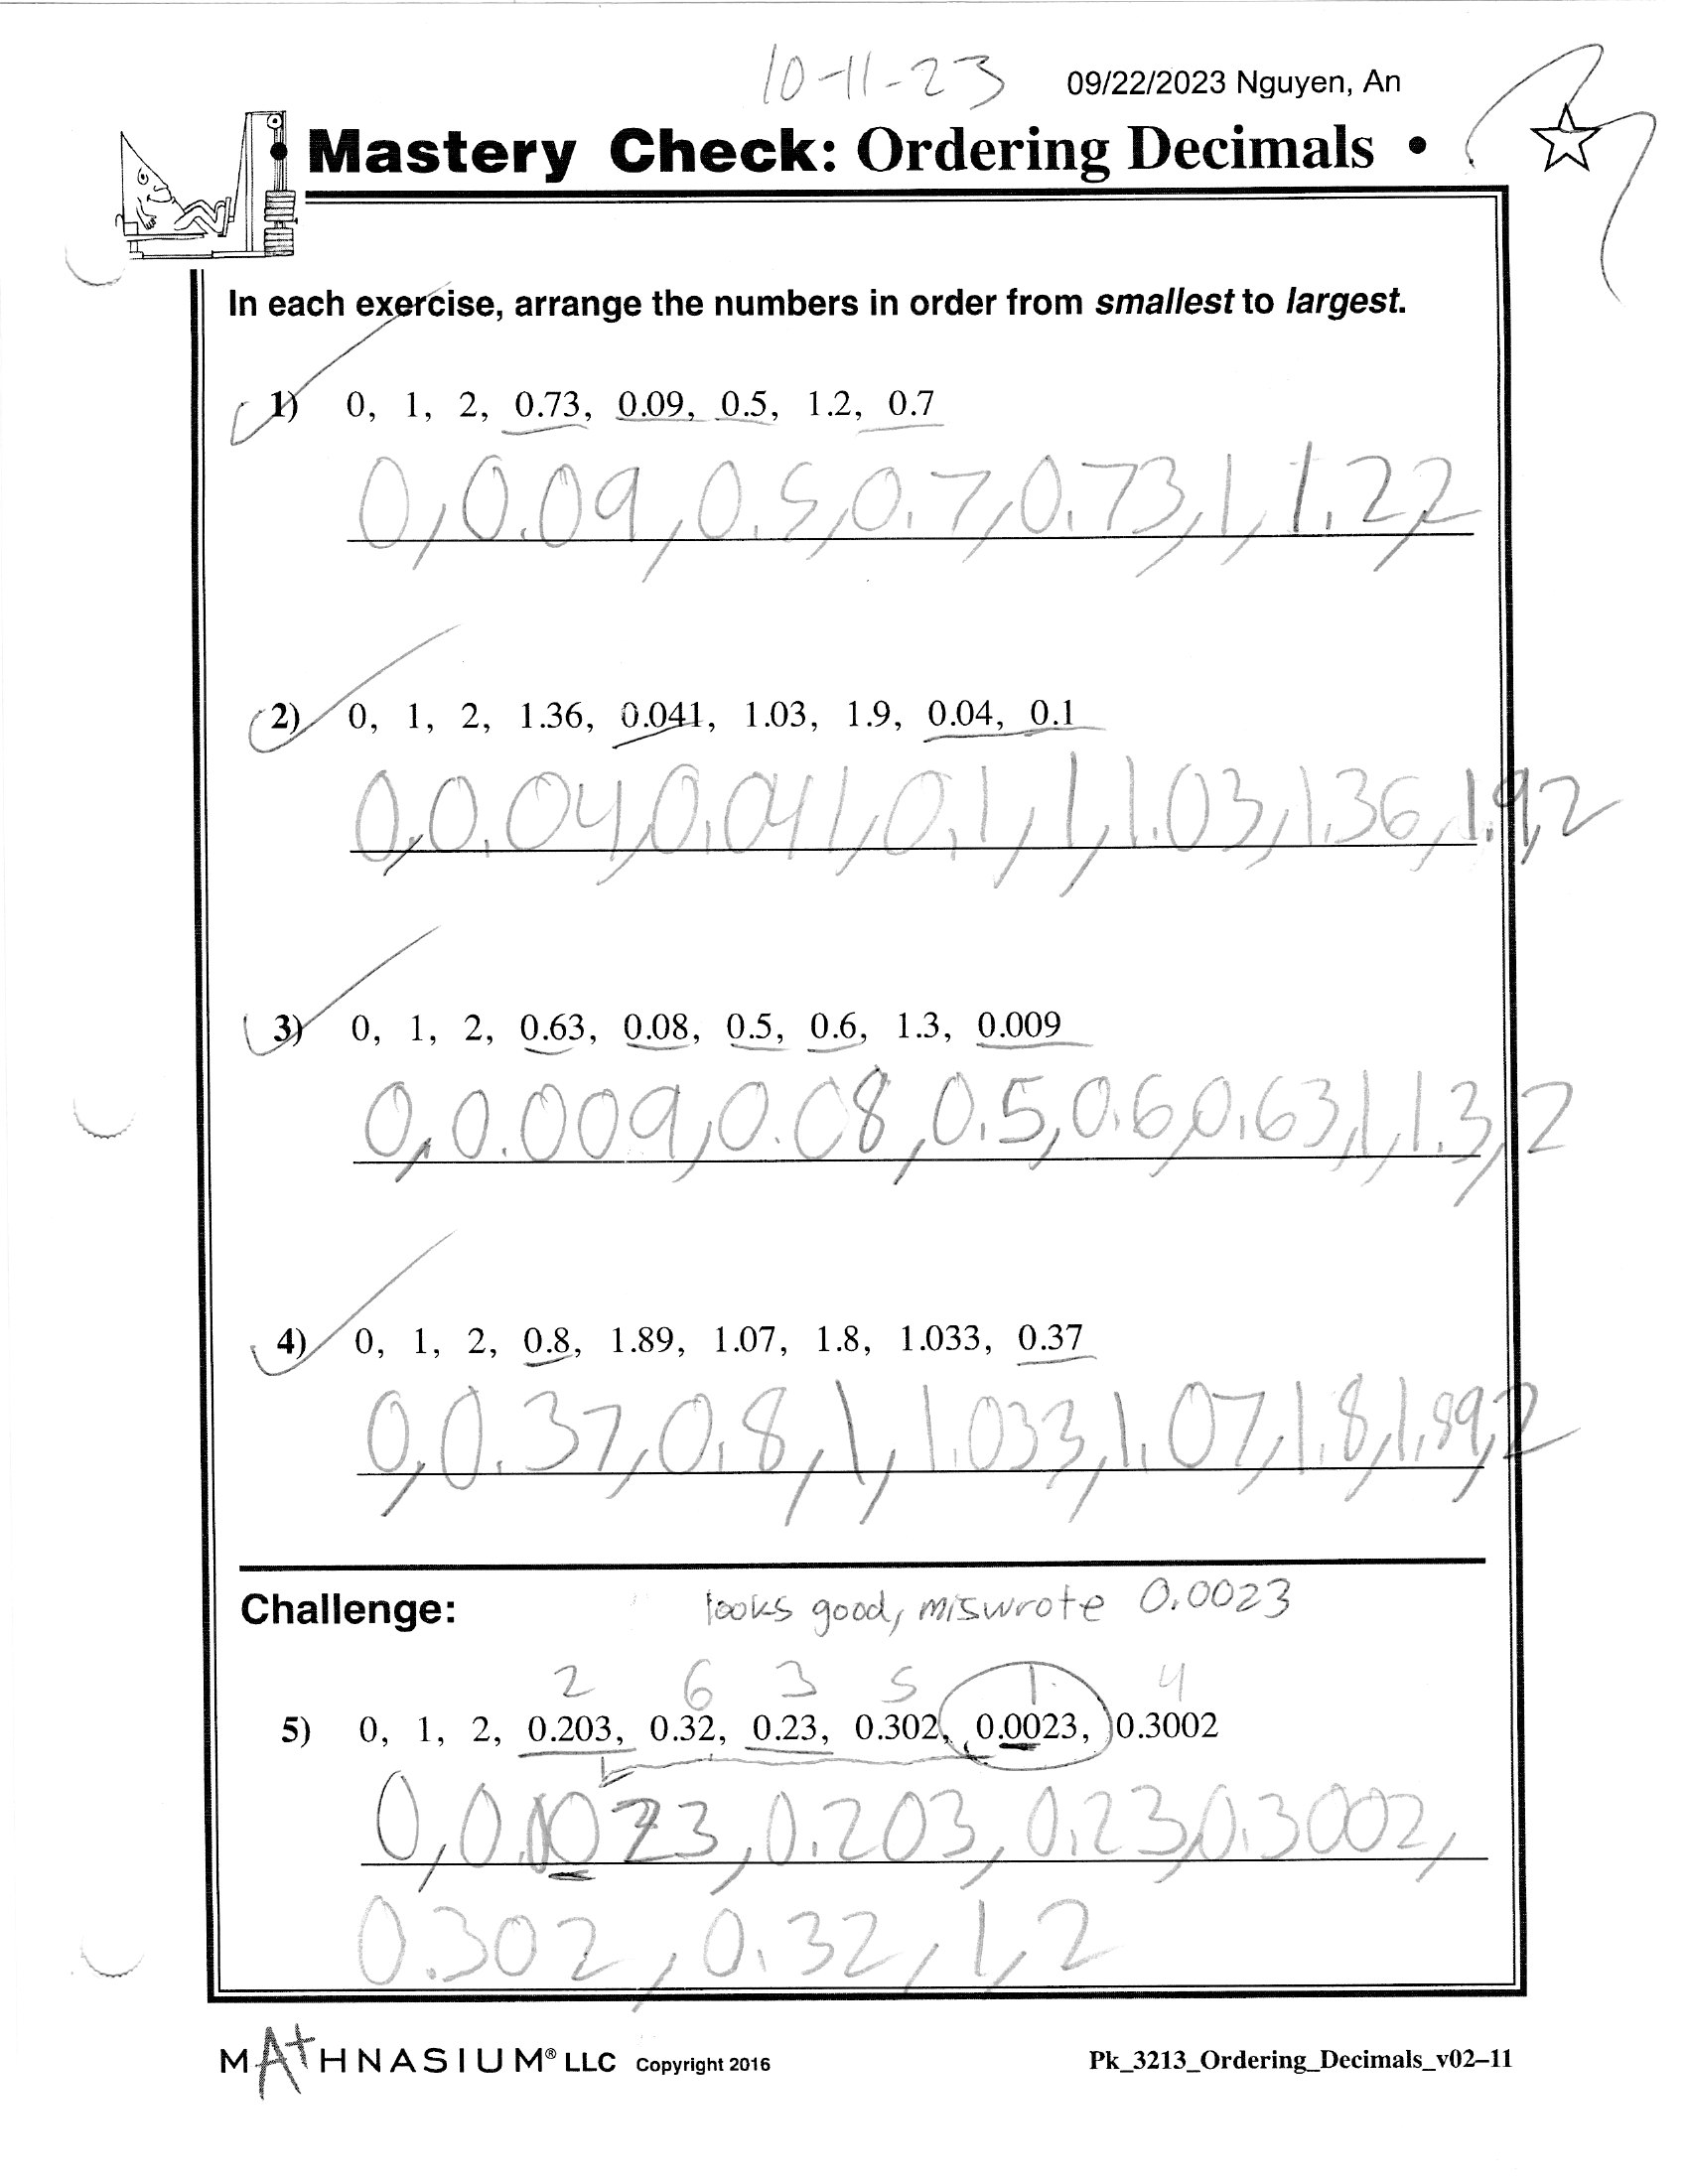 10-11-23 09/22/2023 Nguyen, An
Mastery Check: Ordering Decimals •
In each exercise, arrange the numbers in order from smallest to largest.
1) 0, 1, 2, 0.73, 0.09, 0.5, 1.2, 0.7
0, 0.09, 0.5, 0.7, 0.73, 1, 1.2, 2
2) 0, 1, 2, 1.36, 0.041, 1.03, 1.9, 0.04, 0.1
0, 0.04, 0.041, 0.1, 1, 1.03, 1.36, 1.9, 2
3) 0, 1, 2, 0.63, 0.08, 0.5, 0.6, 1.3, 0.009
0, 0.009, 0.08, 0.5, 0.6, 0.63, 1, 1.3, 2
4) 0, 1, 2, 0.8, 1.89, 1.07, 1.8, 1.033, 0.37
0, 0.37, 0.8, 1, 1.033, 1.07, 1.8, 1.89, 2
Challenge: looks good, miswrote 0.0023
2 6 3 5 1 4
5) 0, 1, 2, 0.203, 0.32, 0.23, 0.302, 0.0023, 0.3002
0, 0.0023, 0.203, 0.23, 0.3002,
0.302, 0.32, 1, 2
MATHNASIUM® LLC Copyright 2016 Pk_3213_Ordering_Decimals_v02–11